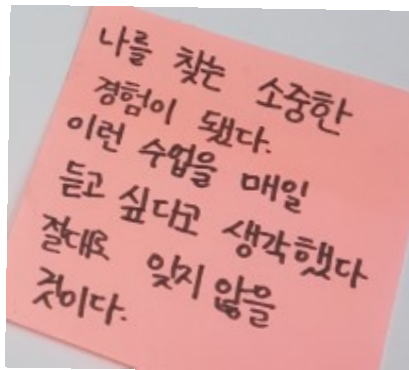 나를 찾는 소중한
경험이 됐다.
이런 수업을 매일
듣고 싶다고 생각했다
절대로 잊지 않을
것이다.